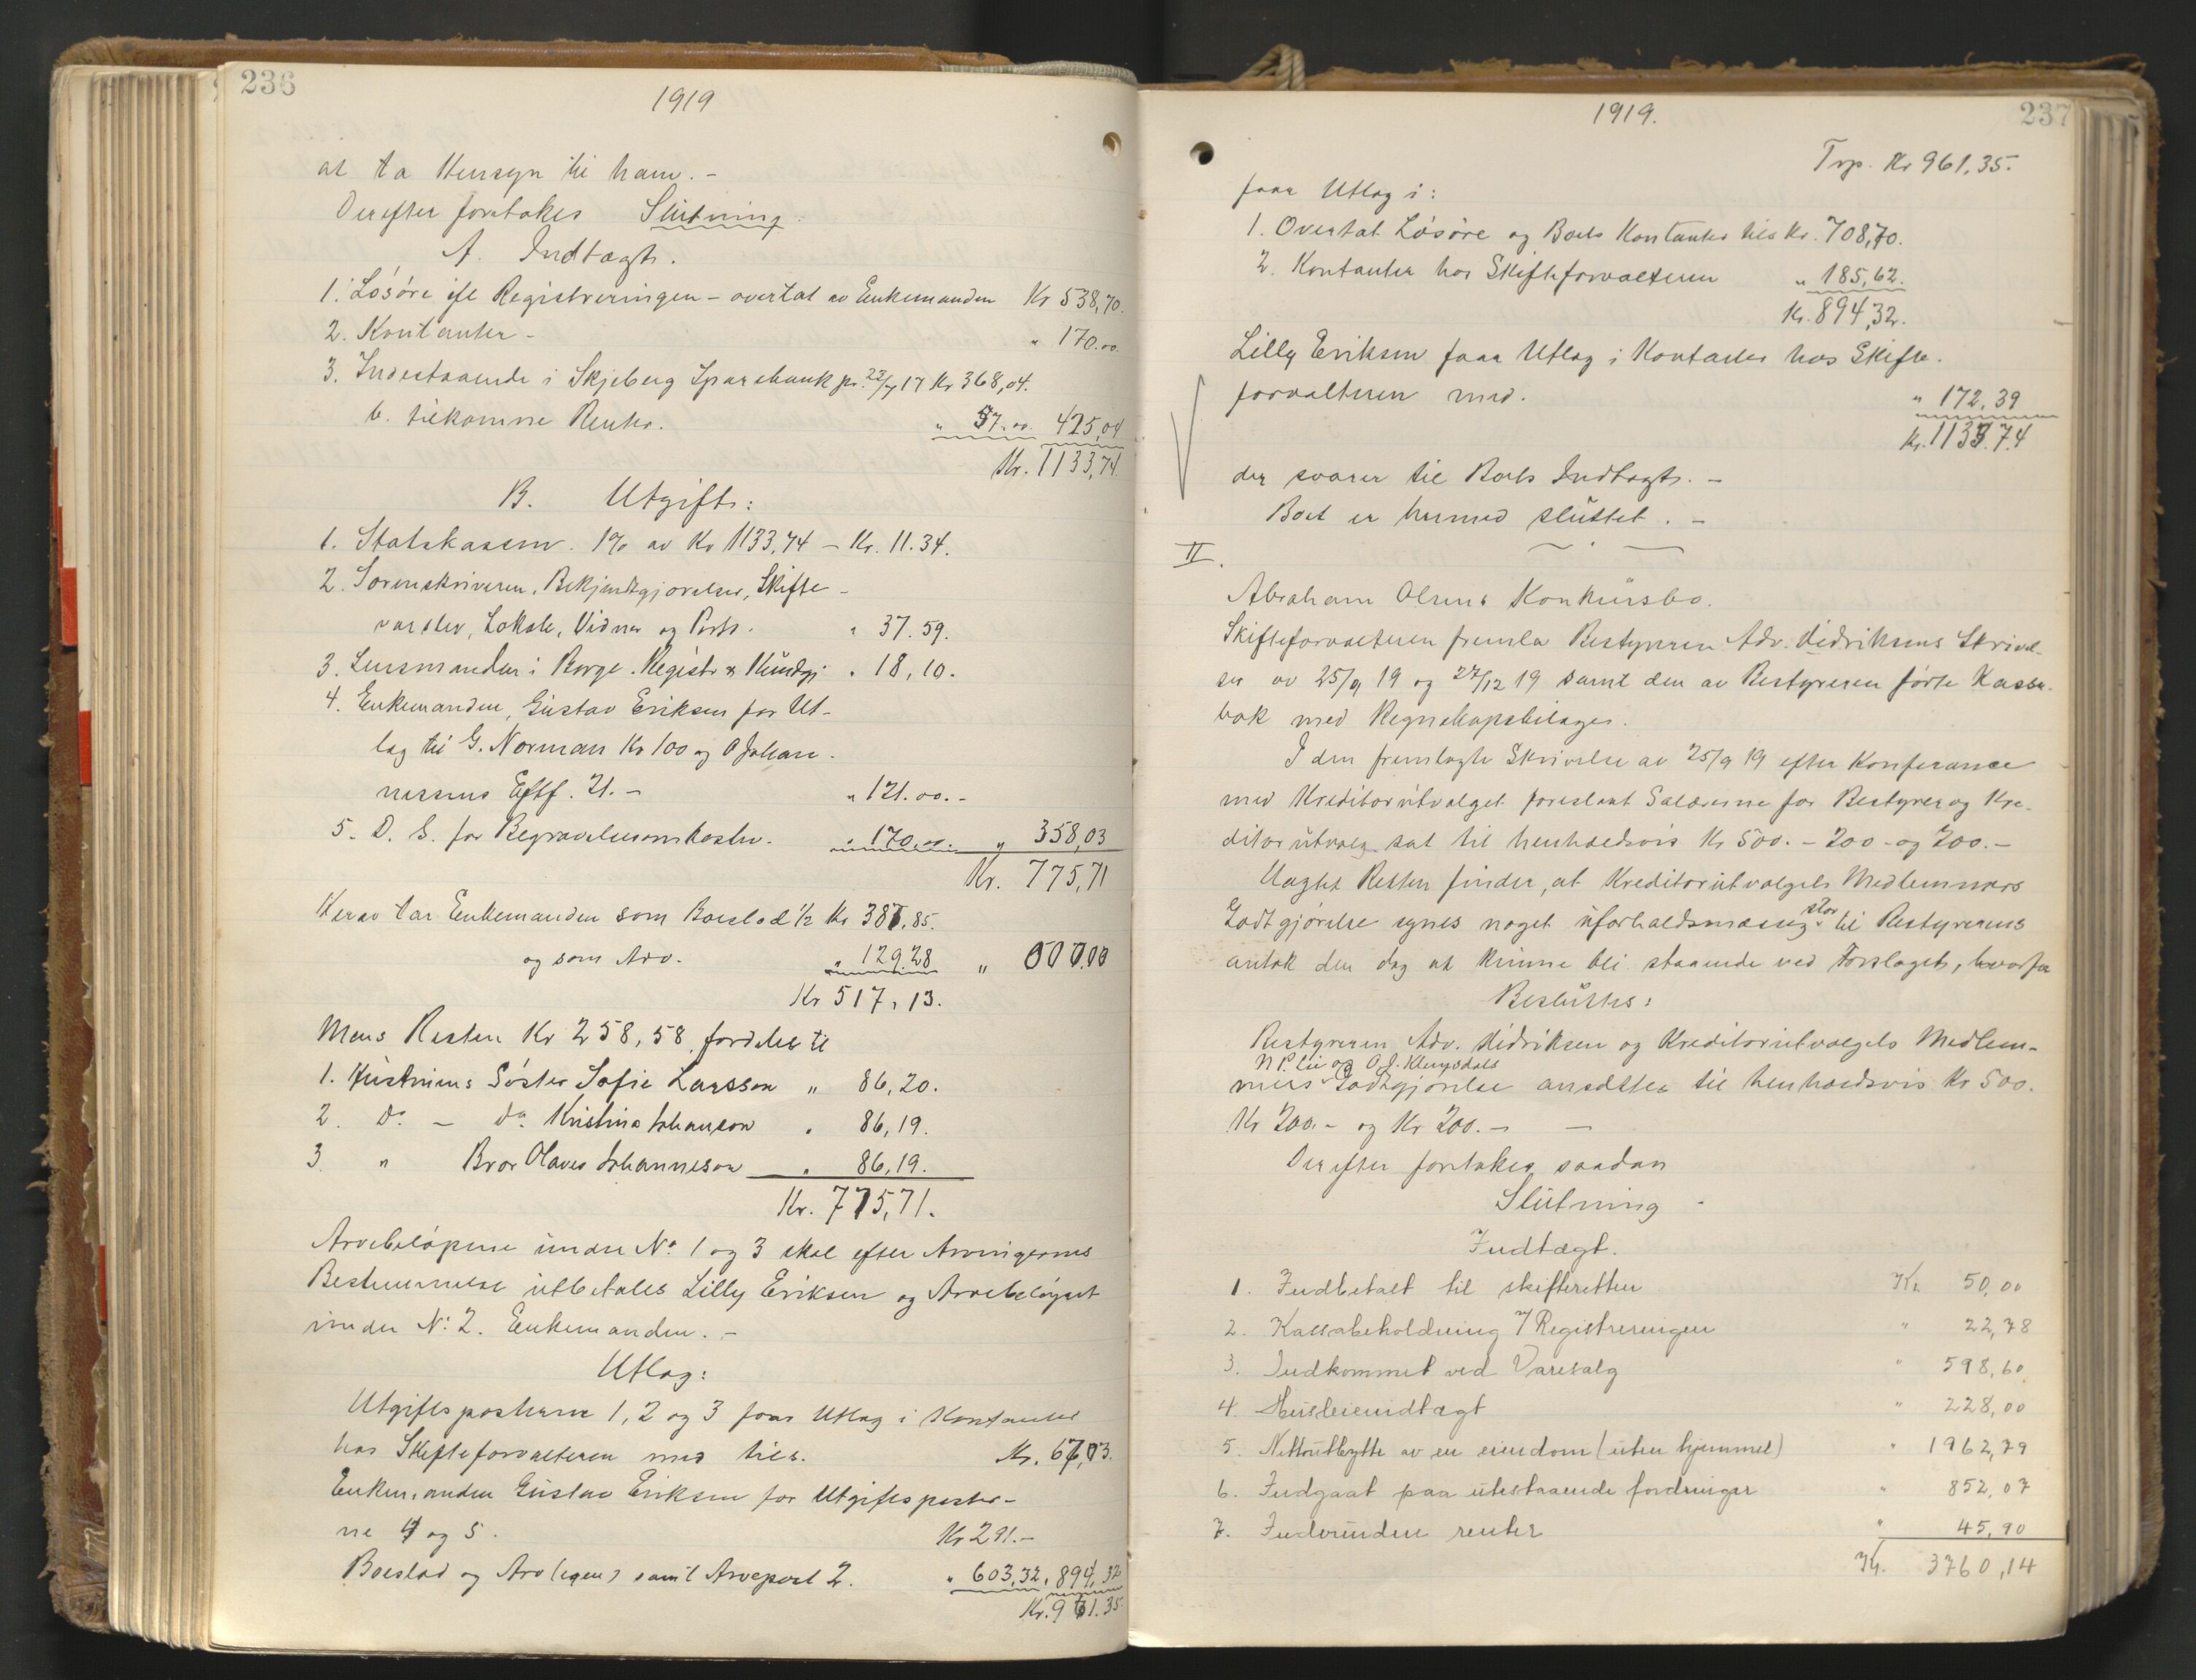 236
1919
at ta Hensyn til ham. -
Derefter foretokes Slutning.
A. Indtægt.
1. Løsøre efl Registreringen - overtat av Enkemanden Kr 538,70.
2. Kontanter - " 170.00
3. Indestaaende i Skjeberg Sparebank pr. 22/7 17 Kr 368,04.
6. tilkomne Renter. " 57.00 425,04
Kr. 1133,74
B. Utgift:
1. Statskassen. 1% av Kr 1133,74 - Kr. 11.34.
2. Sorenskriveren, Bekjendtgjørelser, Skifte-
varsler, Lokale, Vidner og Porto. " 37.59.
3. Lensmanden i Borge. Registr & Kundgj. " 18,10.
4. Enkemanden, Gustav Eriksen for Ut-
lag til G. Norman Kr 100 og O Johan-
nessens Eftf. 21.- " 121.00.-
5. D. S. for Begravelsesomkostn. " 170.00. " 358,03
Kr. 775,71
Herav tar Enkemanden som Boeslod 1/2 Kr 387,85.
og som Arv. " 129.28 "
Kr 517,13.
Mens Resten Kr 258,58 fordeles til
1. Hustruens Søster Sofie Larsson " 86,20.
2. Do - do Kristine Johanson " 86,19.
3. " Bror Olaves Johanneson " 86,19.
Kr. 775,71.
Arvebeløpene under No 1 og 3 skal efter Arvingernes
Bestemmelse utbetales Lilly Eriksen og Arvebeløpet
under No 2. Enkemanden. -
Utlag:
Utgiftsposterne 1, 2 og 3 faar Utlag i Kontanter
hos Skifteforvalteren med tils. Kr. 67,03.
Enkemanden Gustav Eriksen for Utgiftsposter-
ne 4 og 5. Kr 291.-
Boeslod og Arv (egen) samt Arvepost 2. " 603,32, 894,32
Kr. 961.35
237
1919.
Trp. Kr 961,35.
faar Utlag i:
1. Overtat Løsøre og Boets Kontanter tils Kr. 708,70.
2. Kontanter hos Skifteforvalteren " 185,62.
Kr. 894,32.
Lilly Eriksen faar Utlag i Kontanter hos Skifte-
forvalteren med. " 172,39
Kr. 1133.74
der svarer til Boets Indtægt. -
Boet er hermed sluttet. -
II.
Abraham Olsens Konkursbo.
Skifteforvalteren fremla Bestyreren Adv. Didriksens Skrivel-
ser av 25/9 19 og 27/12 19 samt den av Bestyreren førte Kasse-
bok med Regnskapsbilager.
I den fremlagte Skrivelse av 25/9 19 efter Konferance
med Kreditorutvalget foreslaat Salærerne for Bestyrer og Kre-
ditorutvalg sat til henholdsvis Kr 500.- 200 - og 200.-
Uagtet Retten finder, at Kreditorutvalgets Medlemmers
Godtgjørelse synes noget uforholdsmæssig stor til Bestyrerens
antok den dog at kunne bli staaende ved Forslaget, hvorfor
Besluttes:
Bestyreren Adv. Didriksen og Kreditorutvalgets Medlem-
N P. Lie og O. J. Klungsdals
mers Godtgjørelse ansættes til henholdsvis Kr 500.
Kr 200.- og Kr 200.- -
Derefter foretokes saadan
Slutning
Indtægt.
1. Indbetalt til skifteretten Kr. 50,00
2. Kassabeholdning v/ Registreringen " 22,78
3. Indkommet ved Varesalg " 598,60
4. Husleieindtægt " 228,00
5. Nettoutbytte av en eiendom (uten hjemmel) " 1962,79
6. Indgaat paa utestaaende fordringer " 852,07
7. Indvunden renter " 45,90
Kr. 3760,14